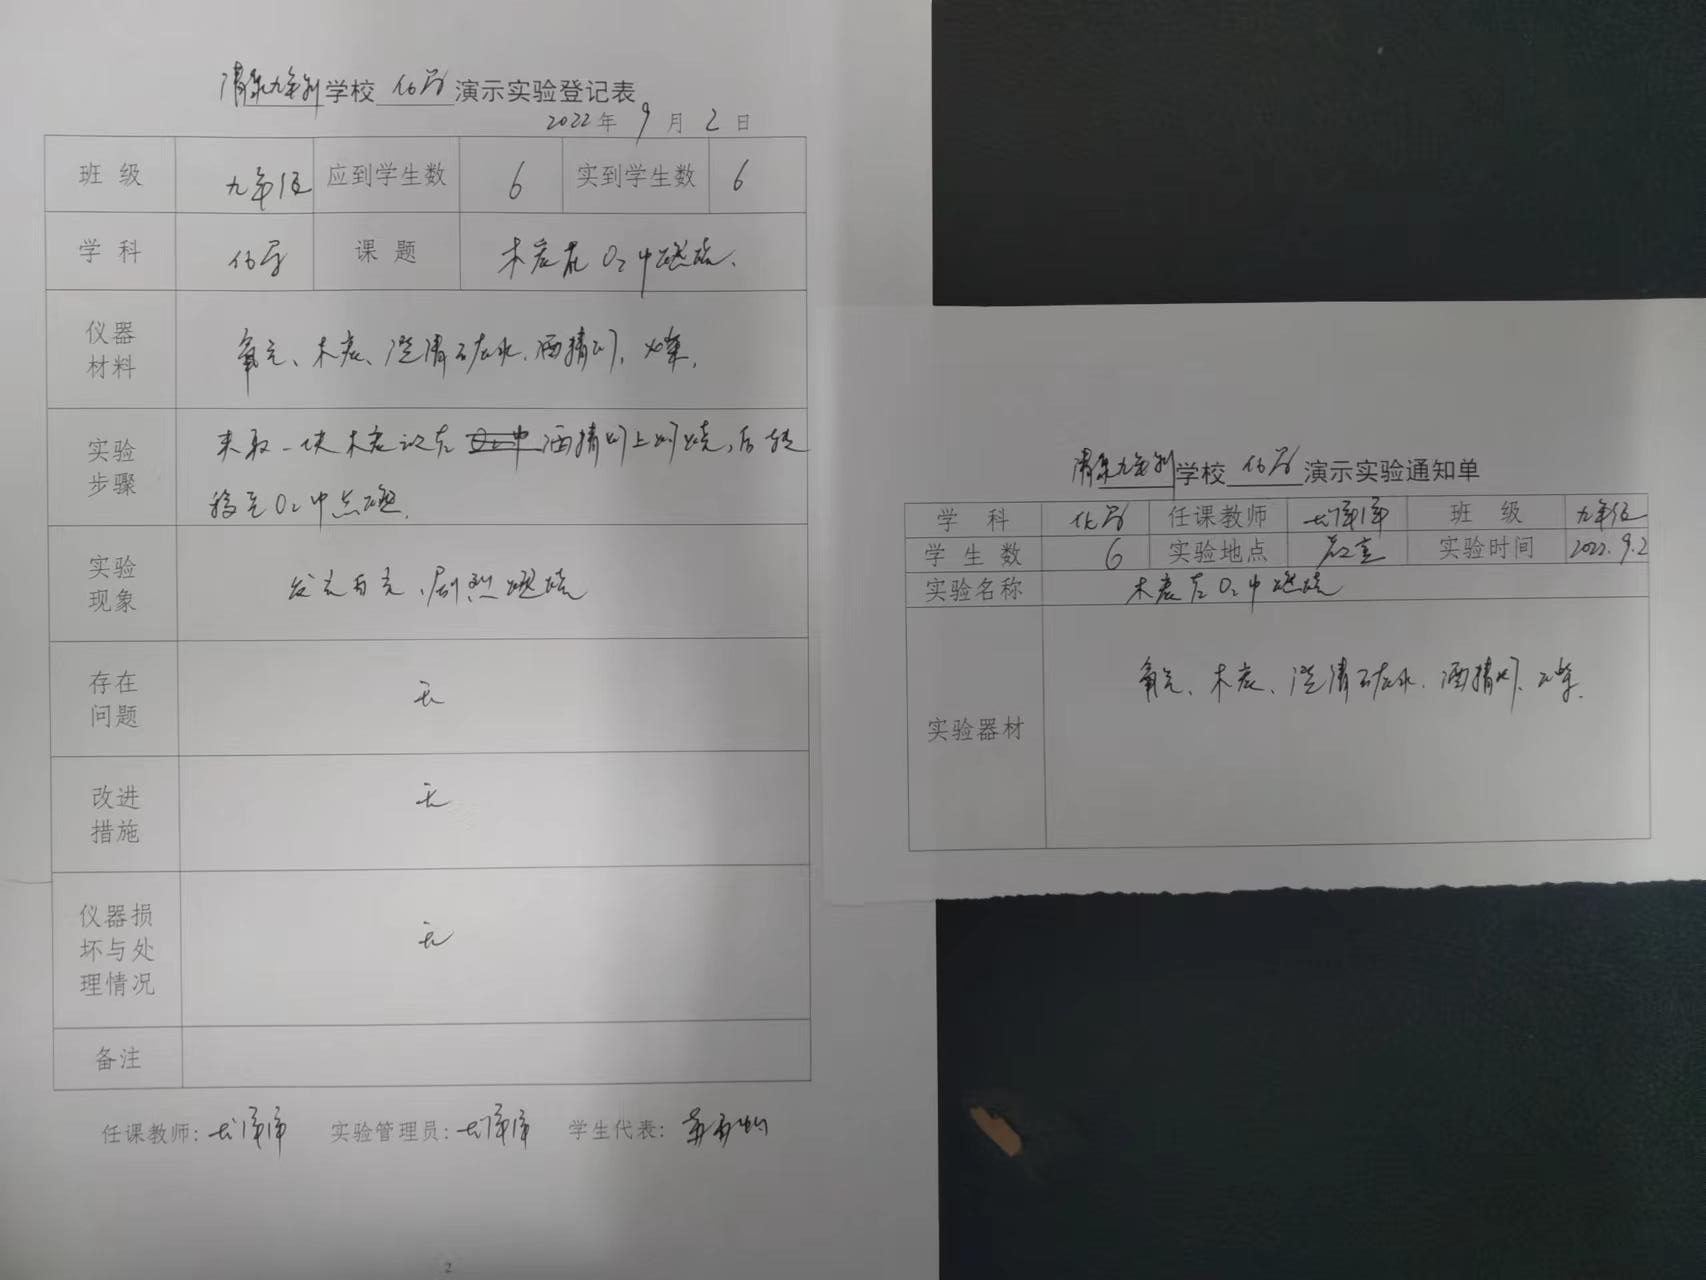 清泉九年制学校 化学 演示实验登记表
2022年 9月 2日
班 级 九年级 应到学生数 6 实到学生数 6
学 科 化学 课 题 木炭在O₂中燃烧.
仪器
材料
氧气、木炭、澄清石灰水.酒精灯,火柴.
实验
步骤
夹取一块木炭放在酒精灯上灼烧,后转
移至O₂中点燃.
实验
现象
发出白光、剧烈燃烧
存在
问题
无
改进
措施
无
仪器损
坏与处
理情况
无
备注
任课教师: 实验管理员: 学生代表:
2
清泉九年制学校 化学 演示实验通知单
学 科 化学 任课教师 班 级 九年级
学 生 数 6 实验地点 教室 实验时间 2022.9.2
实验名称 木炭在O₂中燃烧
实验器材
氧气、木炭、澄清石灰水.酒精灯、火柴.